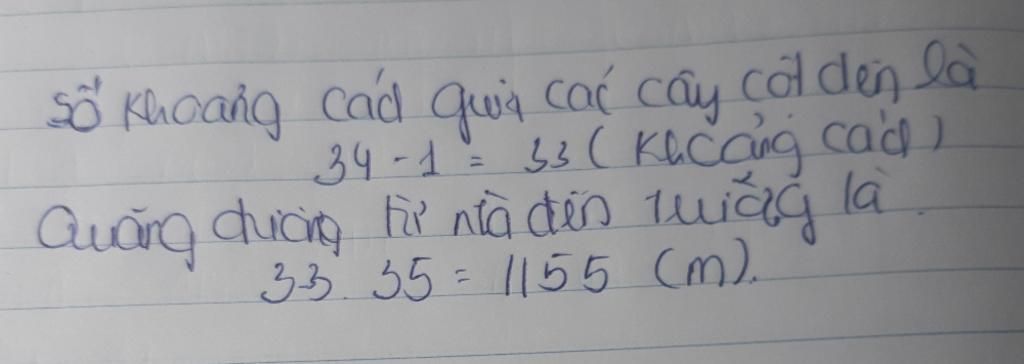 Số khoảng cách giữa các cây cột đèn là
34 - 1 = 33 ( khoảng cách )
Quãng đường từ nhà đến trường là
33 . 35 = 1155 (m).